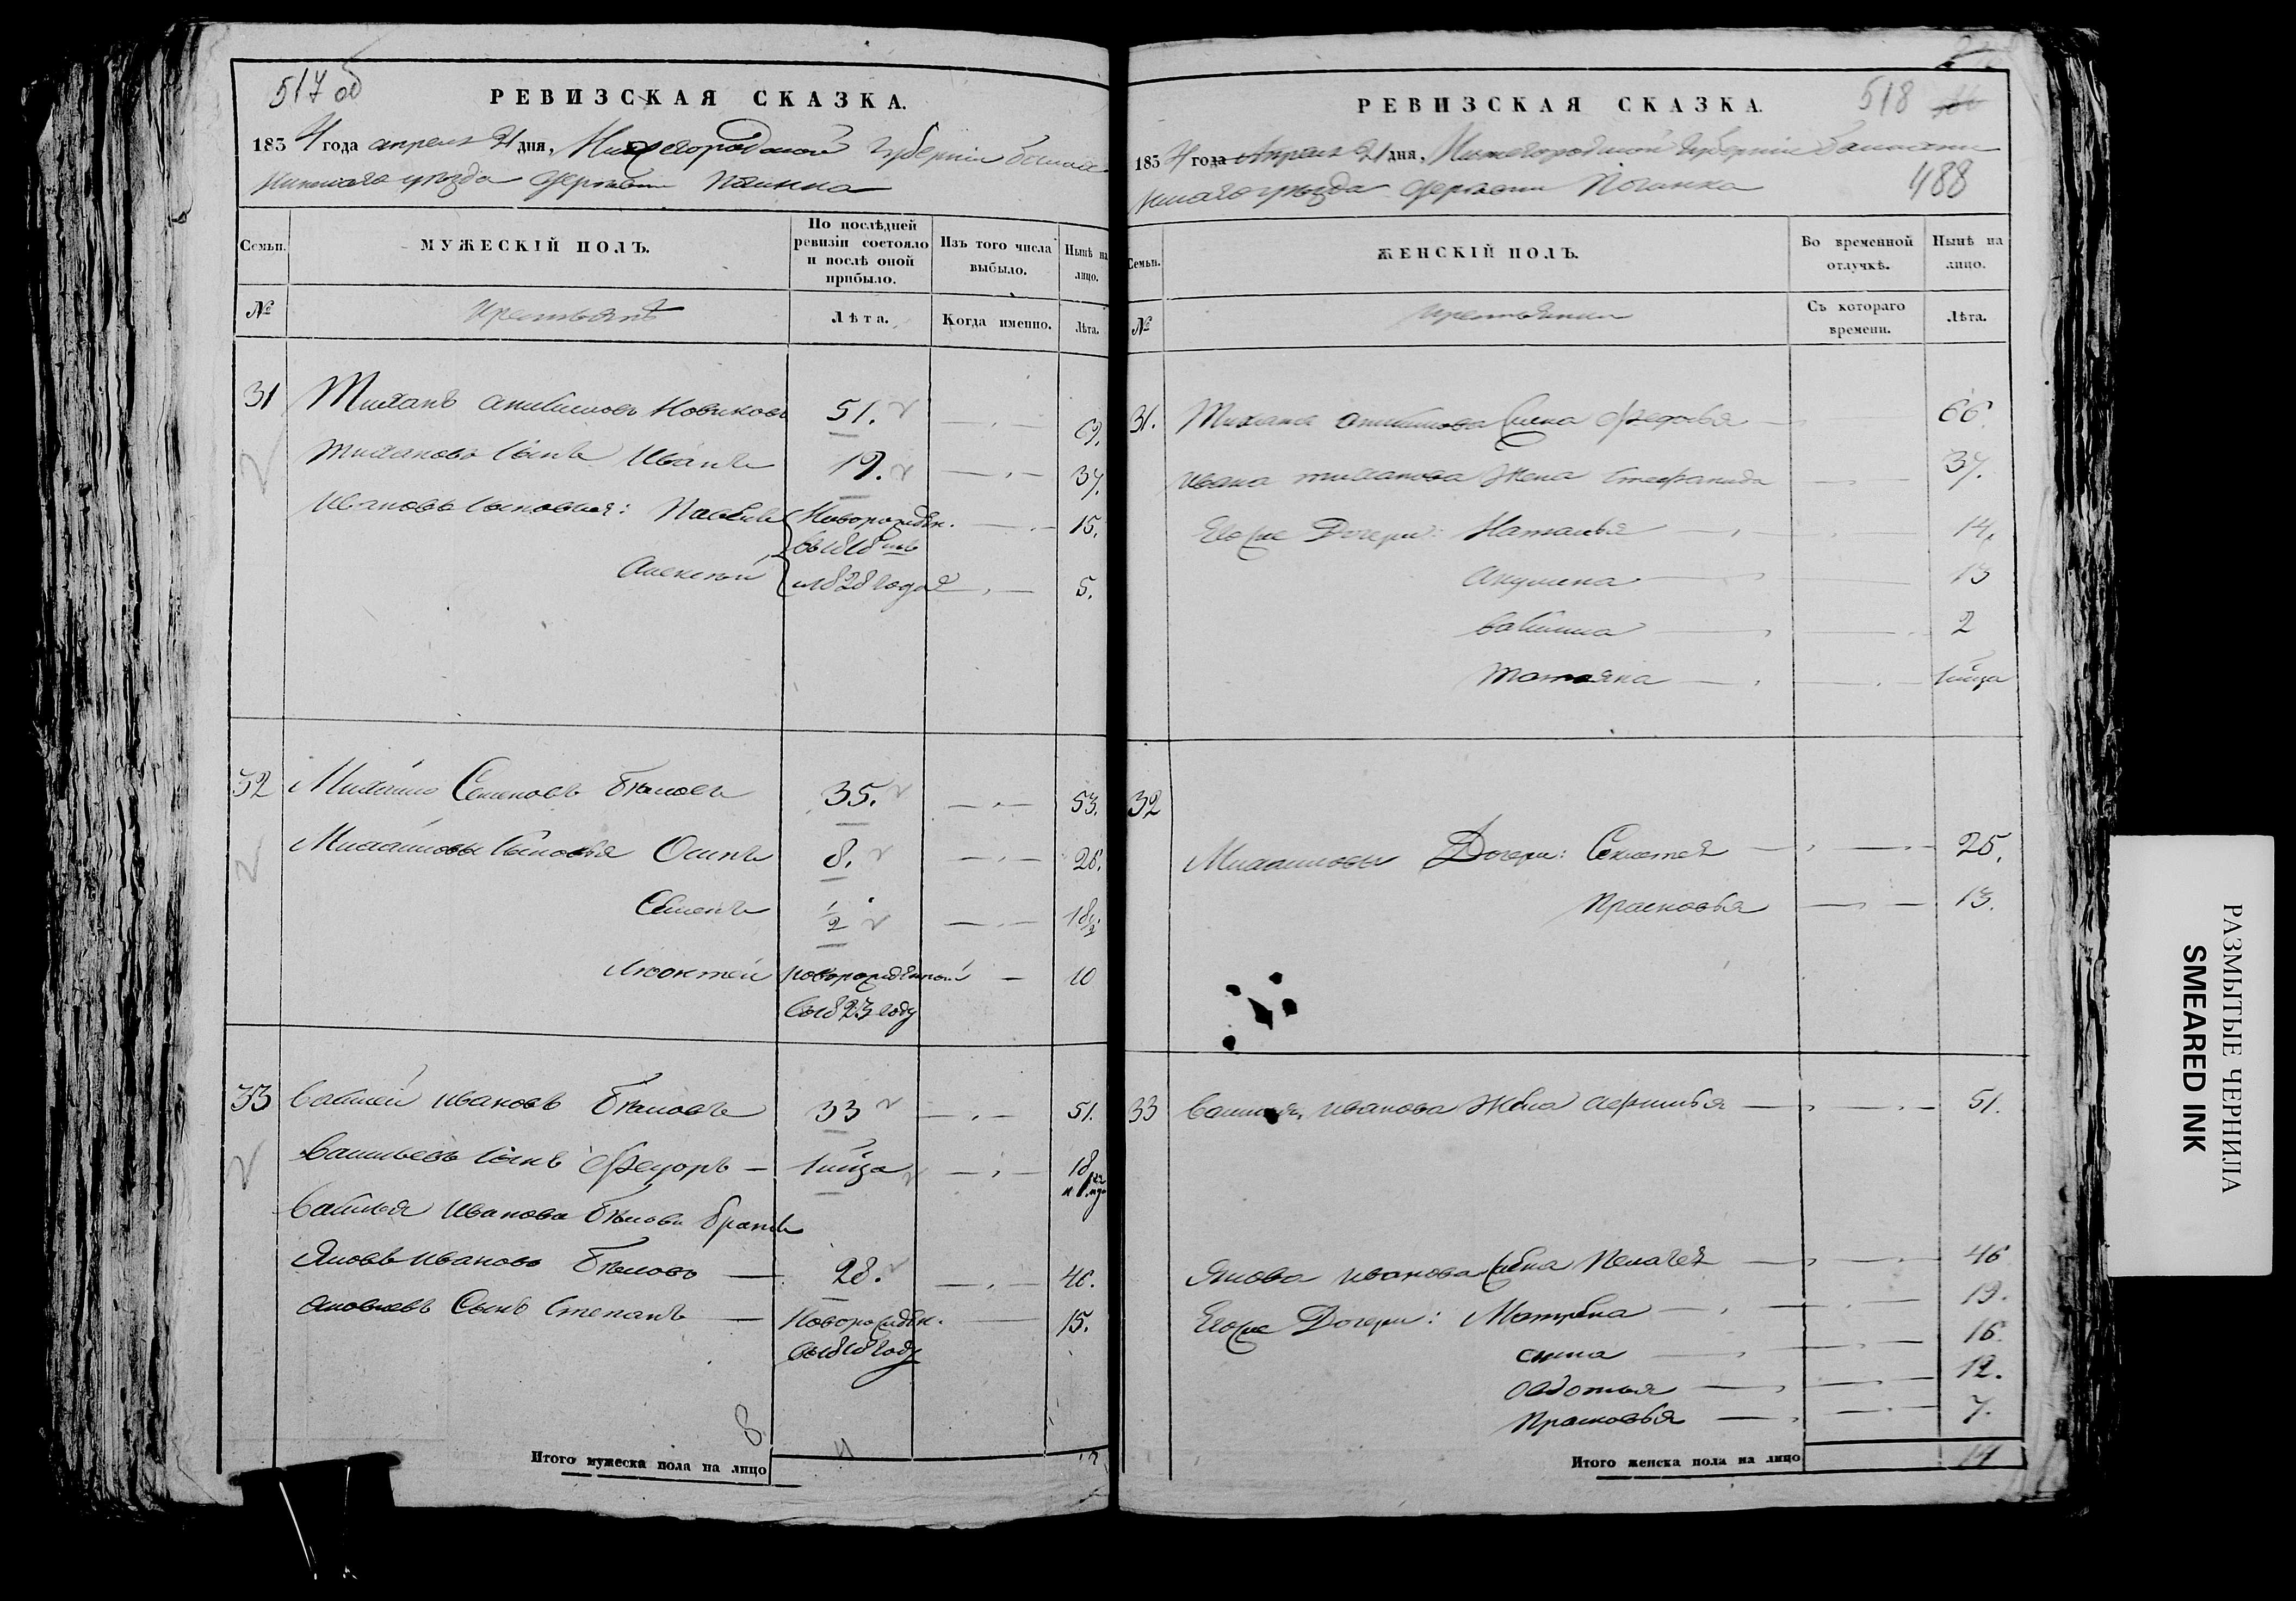 517 об
РЕВИЗСКАЯ СКАЗКА.
1834 года апреля 21 дня, Нижегородской губернiи Балах
нинского уезда деревни Починка
Семьи.
МУЖЕСКIЙ ПОЛЪ.
По послѣдней ревизiи состояло и послѣ оной прибыло.
Изъ того числа выбыло.
Нынѣ на лицо.
№
Крестьянѣ
Лѣта.
Когда именно.
Лѣта.
31 Новиковъ 51. 69.
сынъ Иванъ 19. 37.
Ивановы сыновья: Новорожден. 15.
въ 1818 мъ
Алексѣй и 1828 годах 5.
32 Михайло Семеновъ Бѣловъ 35. 53.
Михайловы сыновья Осипъ 8. 26.
Семенъ 1/2 18 1/2
новорожденной 10
въ 1823 году
33 Василей Ивановъ Бѣловъ 33 51.
Васильевъ сынъ Федоръ 18
Василья Иванова Бѣлова братъ
Яковъ Ивановъ Бѣловъ 28. 46.
Яковлевъ Сынъ Степанъ Новорожден. 15.
въ 1818 году
8
Итого мужеска пола на лицо
518
РЕВИЗСКАЯ СКАЗКА.
1834 года Апреля 21 дня, Нижегородской губернiи Балахни
нскаго уезда деревни Починка
488
Семьи.
ЖЕНСКIЙ ПОЛЪ.
Во временной отлучкѣ.
Нынѣ на лицо.
№
Крестьянки
Съ котораго времени.
Лѣта.
31. жена Федосья 66
Ивана жена Степанида 37.
Его же Дочери: Наталья 14.
Акулина 13
Василиса 2
Татьяна
32
Михайловы Дочери: 25.
Прасковья 13.
33 Василья Иванова жена Афимья 51.
Якова Иванова жена Пелагея 46
Его же Дочери: Матрена 19.
Анна 16.
Овдотья 12.
Прасковья 7.
Итого женска пола на лицо 14
РАЗМЫТЫЕ ЧЕРНИЛА
SMEARED INK